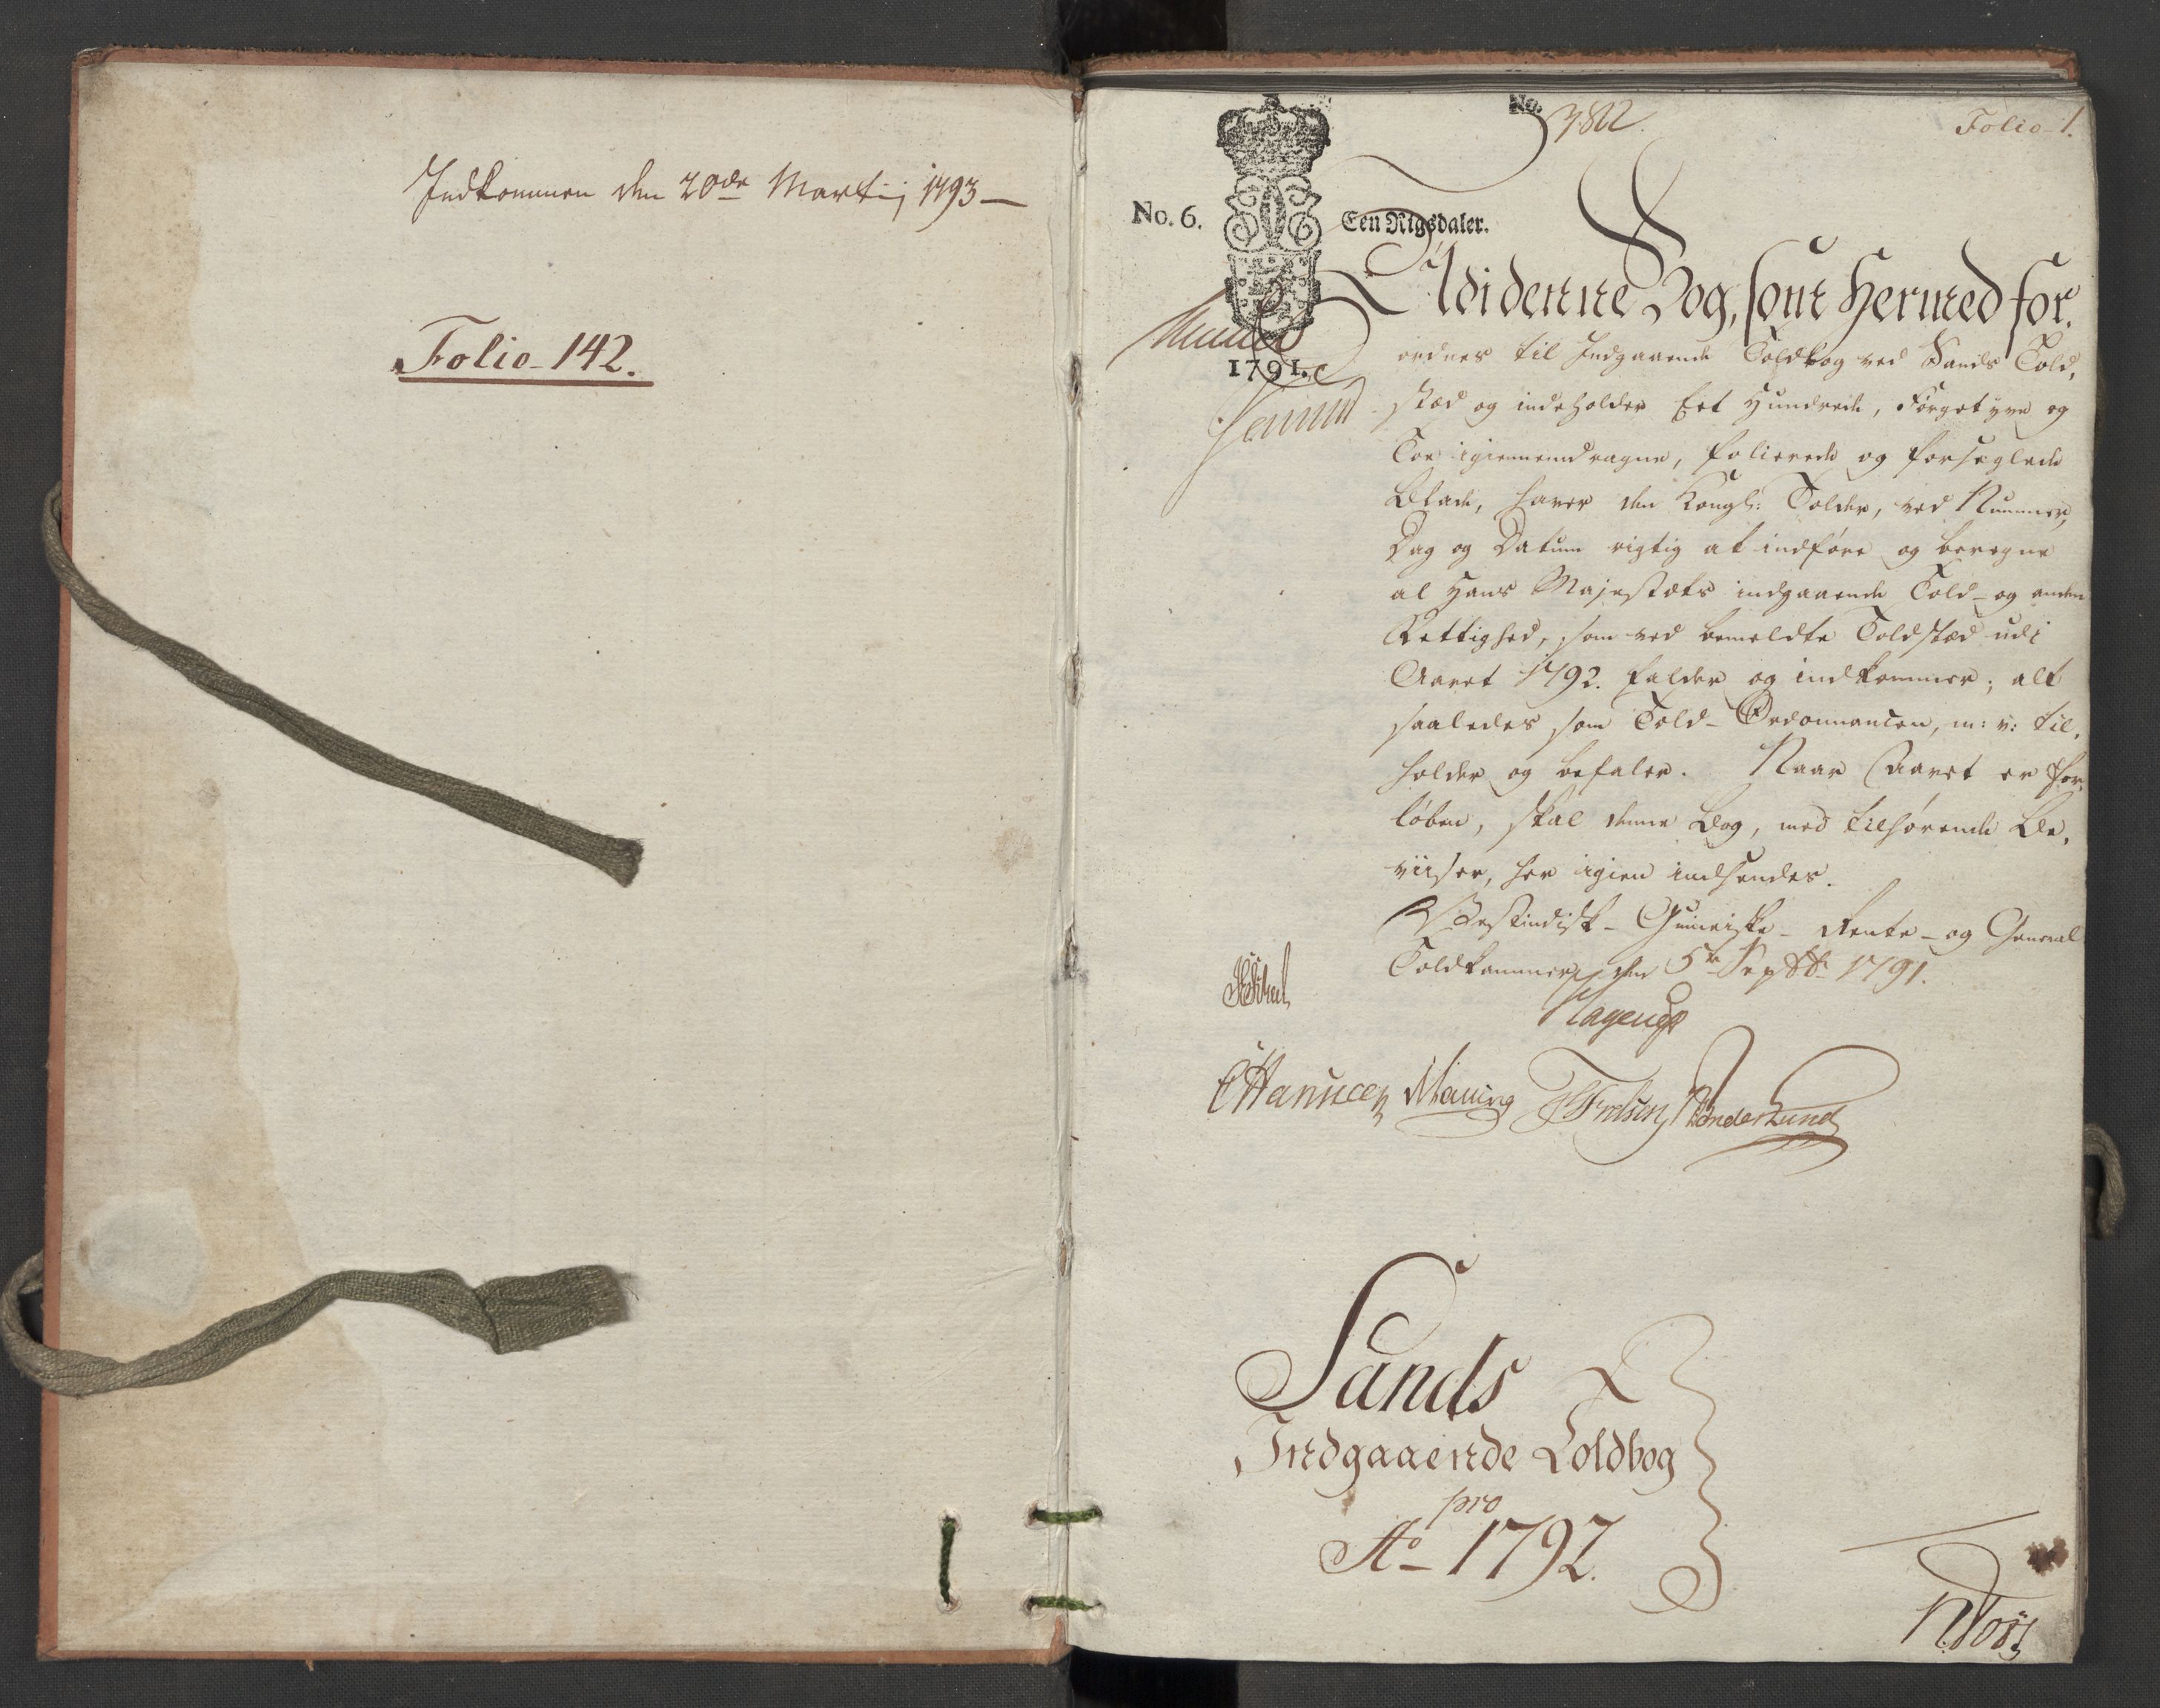 Indkommen den 20de Martij 1793
Folio 142.
No. 3822.
Folio 1.
No. 6.
Een Rigsdaler.
1791.
Udi denne Bog, som hermed for,
ordnes til Indgaaende Toldbog ved Sands Told,
stæd og indeholder Eet Hundrede, Fórgetyve og
Toe igiennemdragne, folierede og forseglede
Blade, haver den Kongl: Tolder, ved Nummer,
Dag og Datum rigtig at indføre og beregne
al Hans Majestæts indgaaende Told- og anden
Rettighed, som ved bemeldte Toldstæd udi
Aaret 1792. falder og indkommer; alt
saaledes som Told-Ordonnancen, m: v: til,
holder og befaler. Naar Aaret er for,
løben, skal denne Bog, med tilhørende Be,
viiser, her igien indsendes.
Vestindisk- Guineiske- Rente- og General
Toldkammer, den 5te Septbr 1791.
Sands
Indgaaende Toldbog
pro
Ao 1792.